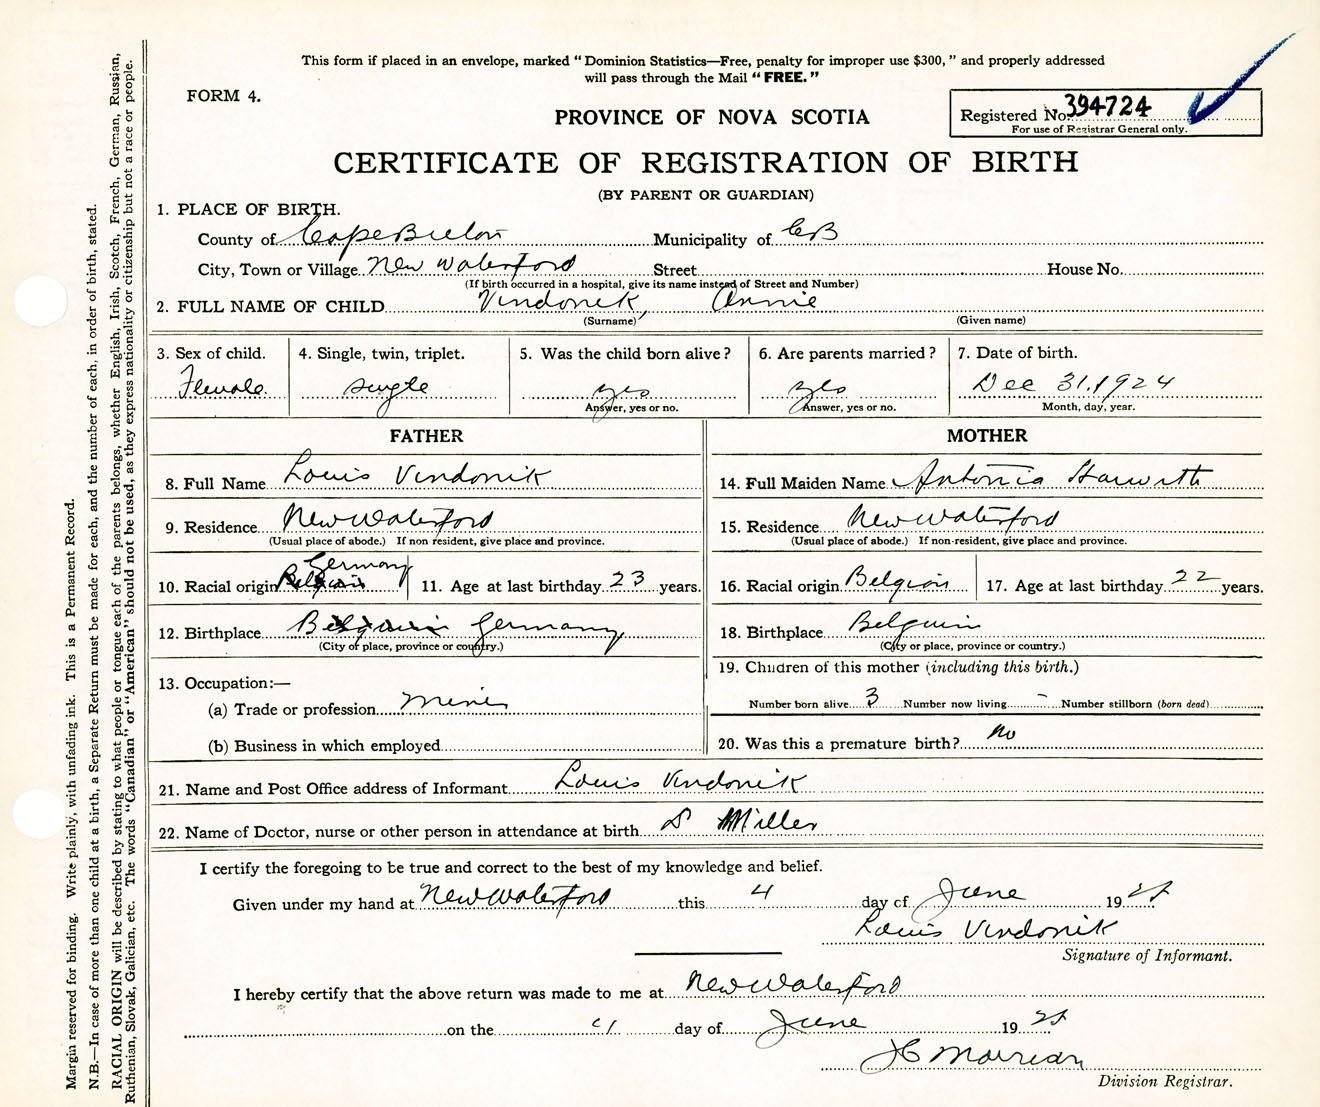 This form if placed in an envelope, marked "Dominion Statistics—Free, penalty for improper use $300," and properly addressed
will pass through the Mail "FREE."
FORM 4.
PROVINCE OF NOVA SCOTIA
Registered No. 394724
For use of Registrar General only.
CERTIFICATE OF REGISTRATION OF BIRTH
(BY PARENT OR GUARDIAN)
1. PLACE OF BIRTH.
County of Cape Breton Municipality of CB
City, Town or Village New Waterford Street House No.
(If birth occurred in a hospital, give its name instead of Street and Number)
2. FULL NAME OF CHILD Vindonik, Annie
(Surname) (Given name)
3. Sex of child. 4. Single, twin, triplet. 5. Was the child born alive? 6. Are parents married? 7. Date of birth.
Female single yes yes Dec 31, 1924
Answer, yes or no. Answer, yes or no. Month, day, year.
FATHER MOTHER
8. Full Name Louis Vindonik 14. Full Maiden Name Antonia
9. Residence New Waterford 15. Residence New Waterford
(Usual place of abode.) If non resident, give place and province. (Usual place of abode.) If non-resident, give place and province.
Germany
10. Racial origin 11. Age at last birthday 23 years. 16. Racial origin Belgian 17. Age at last birthday 22 years.
12. Birthplace Germany 18. Birthplace Belguim
(City or place, province or country.) (City or place, province or country.)
19. Children of this mother (including this birth.)
13. Occupation:—
(a) Trade or profession Miner Number born alive 3 Number now living - Number stillborn (born dead)
(b) Business in which employed 20. Was this a premature birth? No
21. Name and Post Office address of Informant Louis Vindonik
22. Name of Doctor, nurse or other person in attendance at birth Miller
I certify the foregoing to be true and correct to the best of my knowledge and belief.
Given under my hand at New Waterford this 4 day of June 19
Louis Vindonik
Signature of Informant.
I hereby certify that the above return was made to me at New Waterford
on the day of June 19
Division Registrar.
Margin reserved for binding. Write plainly, with unfading ink. This is a Permanent Record.
N.B.—In case of more than one child at a birth, a Separate Return must be made for each, and the number of each, in order of birth, stated.
RACIAL ORIGIN will be described by stating to what people or tongue each of the parents belongs, whether English, Irish, Scotch, French, German, Russian,
Ruthenian, Slovak, Galician, etc. The words "Canadian" or "American" should not be used, as they express nationality or citizenship but not a race or people.